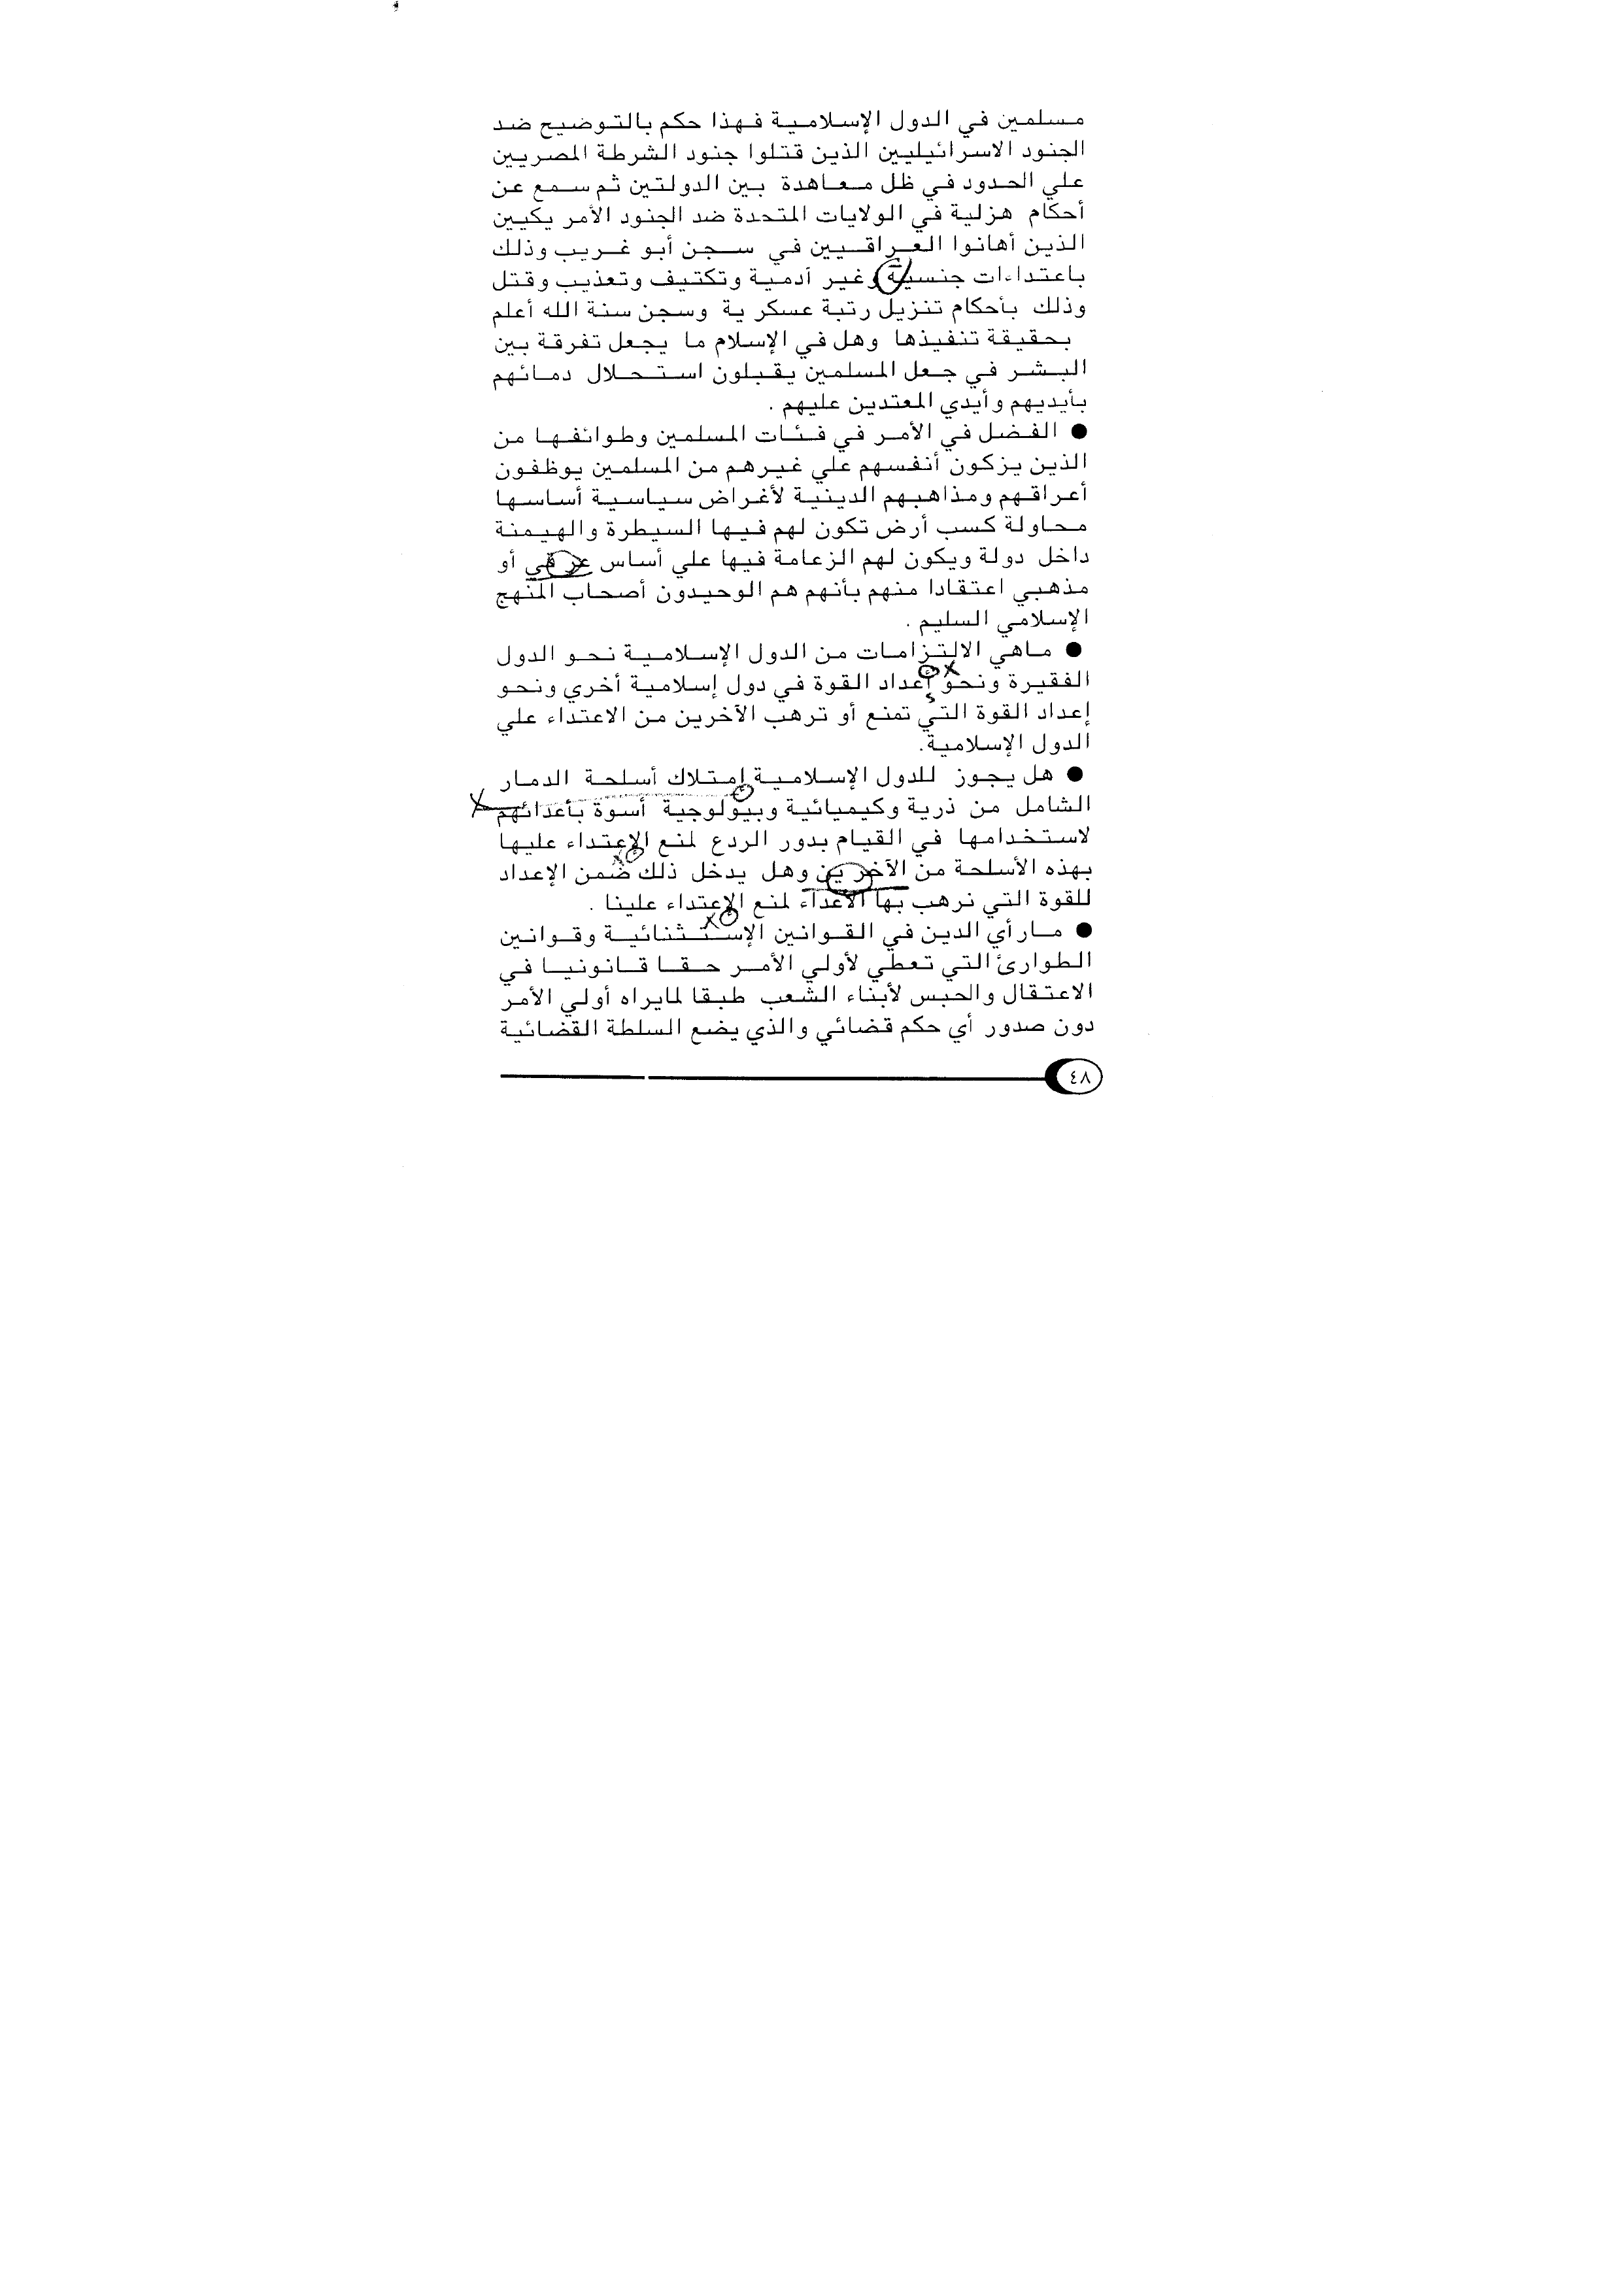 مسلمين في الدول الإسلامية فهذا حكم بالتوضيح ضد
الجنود الاسرائيليين الذين قتلوا جنود الشرطة المصريين
علي الحدود في ظل معاهدة بين الدولتين ثم سمع عن
أحكام هزلية في الولايات المتحدة ضد الجنود الأمر يكيين
الذين أهانوا العراقيين في سجن أبو غريب وذلك
باعتداءات جنسية وغير أدمية وتكتيف وتعذيب وقتل
وذلك بأحكام تنزيل رتبة عسكر ية وسجن سنة الله أعلم
بحقيقة تنفيذها وهل في الإسلام ما يجعل تفرقة بين
البشر في جعل المسلمين يقبلون استحلال دمائهم
بأيديهم وأيدي المعتدين عليهم .
● الفضل في الأمر في فئات المسلمين وطوائفها من
الذين يزكون أنفسهم علي غيرهم من المسلمين يوظفون
أعراقهم ومذاهبهم الدينية لأغراض سياسية أساسها
محاولة كسب أرض تكون لهم فيها السيطرة والهيمنة
داخل دولة ويكون لهم الزعامة فيها علي أساس عر قي أو
مذهبي اعتقادا منهم بأنهم هم الوحيدون أصحاب المنهج
الإسلامي السليم .
● ماهي الالتزامات من الدول الإسلامية نحو الدول
الفقيرة ونحو أعداد القوة في دول إسلامية أخري ونحو
إعداد القوة التي تمنع أو ترهب الآخرين من الاعتداء علي
الدول الإسلامية.
● هل يجوز للدول الإسلامية إمتلاك أسلحة الدمار
الشامل من ذرية وكيميائية وبيولوجية أسوة بأعدائهم
لاستخدامها في القيام بدور الردع لمنع الإعتداء عليها
بهذه الأسلحة من الآخر ين وهل يدخل ذلك ضمن الإعداد
للقوة التي نرهب بها الأعداء لمنع الإعتداء علينا .
● مارأي الدين في القوانين الإستثنائية وقوانين
الطوارئ التي تعطي لأولي الأمر حقا قانونيا في
الاعتقال والحبس لأبناء الشعب طبقا لمايراه أولي الأمر
دون صدور أي حكم قضائي والذي يضع السلطة القضائية
٤٨